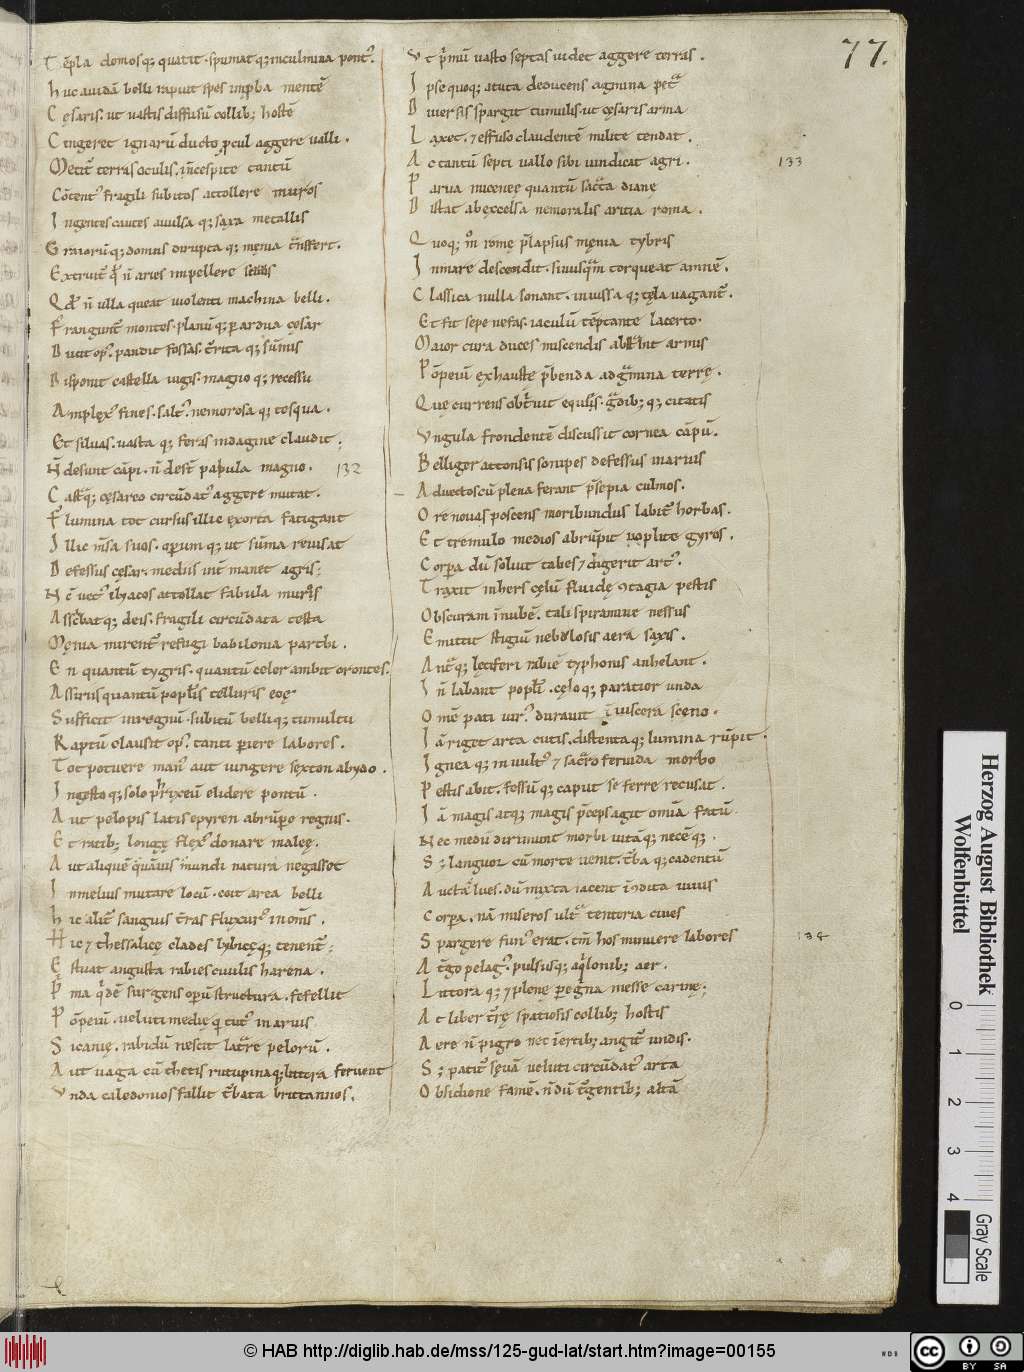 77.
Tēpla domosq; quatit. spumatq; inculmina pont᾽.
Huc auidā belli rapuit spes improba mentē
Cęsaris. ut uastis diffusū collib; hostē
Cingeret ignarū ducto procul aggere ualli.
Metit᾽ terras oculis. in cespite tantū
Cōtent᾽ fragili subitos attollere muros
Ingentes cautes auulsa q; saxa metallis
Graiorūq; domus dirupta q; męnia trāsfert.
Extruit᾽ qd n̄ aries impellere seuus
Qd n̄ ulla queat uiolenti machina belli.
Frangunt᾽ montes. planūq; per ardua cęsar
Ducit op᾽. pandit fossas. t᾽rita q; sūmis
Disponit castella iugis. magno q; recessu
Amplex᾽ fines. salt᾽. nemorosa q; tesqua.
Et siluas. uasta q; feras indagine claudit;
N̄ desunt cāpi. n̄ des̄t pabula magno.
132
Castraq; cęsareo circūdat᾽ aggere mutat.
Flumina tot cursus illic exorta fatigant
Illic m̄sa suos. operum q; ut sūma reuisat
Defessus cęsar. mediis int᾽ manet agris;
Nc̄ uet᾽ iliacos attollat fabula muros
Asscribatq; deis. fragili circūdata testa
Męnia mirent᾽ refugi babilonia parthi.
En quantū tygris. quantū celer ambit orontes.
Assiriis quantū poplis telluris eoę
Sufficit inregnū. subitū belliq; tumultu
Raptū clausit op᾽. tanti periere labores.
Tot potuere man᾽ aut iungere sexton abydo.
Ingestoq; solo phrixeū elidere pontū.
Aut pelopis latis epyren abrūpe regnis.
Et ratib; longę flex᾽ donare maleę.
Aut aliquē quāuis mundi natura negasset
Inmelius mutare locū. coit area belli
Hic alit᾽ sanguis t᾽ras fluxur᾽ in om̄s.
Hic ⁊ thessalicę clades lybicęq; tenent᾽;
Estuat angusta rabies ciuilis harena.
Prima qdē surgens operū structura. fefellit
Pōpeiū. ueluti medię qui tut᾽ in aruis
Sicanię. rabidū nescit latrare pelorū.
Aut uaga cū thetis rutupinaq; littora feruent
Unda caledonios fallit t᾽bata brittannos.
Ut p᾽mū uasto septas uidet aggere terras.
Ipse quoq; a tuta deducens agmina petra
Diuersis spargit tumulis. ut cęsaris arma
Laxet. ⁊ effuso claudentē milite tendat.
Ac tantū septi uallo sibi uindicat agri.
133
Parua micenę quantū sacrata dianę
Distat ab excelsa nemoralis aritia roma.
Quoq; m̊ romę p̄lapsus męnia tybris
Inmare descendit. si nusquā torqueat amnē.
Classica nulla sonant. iniussa q; tęla uagant᾽.
Et fit sepe nefas. iaculū tēptante lacerto.
Maior cura duces miscendis abstrahit armis
Pōpeiū exhaustę p̄benda ad gramina terrę.
Quę currens obt᾽uit equus. gradib; q; citatis
Ungula frondentē discussit cornea cāpū.
Belliger attonsis sonipes defessus in aruis
Aduectos cū plena ferant p̄sepia culmos.
Ore nouas poscens moribundus labit᾽ herbas.
Et tremulo medios abrūpit poplite gyros.
Corpora dū soluit tabes ⁊ digerit art᾽.
Traxit inhers cęlū fluidę contagia pestis
Obscuram in nubē. tali spiramine nessus
Emittit stigiū nebulosis aera saxis.
Antraq; lętiferi rabiē typhonis anhelant.
In̄ labant popli. cęlo q; paratior unda
Om̄e pati uir᾽. durauit ī uiscera sceno.
Iā riget arta cutis. distentaq; lumina rūpit.
Ignea q; in uult᾽ ⁊ sacro feruida morbo
Pestis abit. fessūq; caput se ferre recusat.
Iā magis atq; magis p̄ceps agit omīa fatū.
Nec mediū dirimunt morbi uitāq; necēq;.
S; languor cū morte uenit. t᾽ba q; cadentū
Aucta lues. dū mixta iacent īhūmata uiuis
Corpora. nā miseros ultra tentoria ciues
Spargere fun᾽ erat. tm̄ hos minuere labores
134
A t᾽go pelag᾽. pulsusq; aqlonib; aer.
Littora q; ⁊ plenę peregrina messe carinę;
At liber t᾽rę spatiosis collib; hostis
Aere n̄ pigro nec inertib; angit᾽ undis.
S; patit᾽ sęuā ueluti circūdat᾽ arta
Obsidione famē. n̄dū t᾽gentib; altā
Herzog August Bibliothek
Wolfenbüttel
0 1 2 3 4
Gray Scale
© HAB http://diglib.hab.de/mss/125-gud-lat/start.htm?image=00155
WDB
cc BY SA